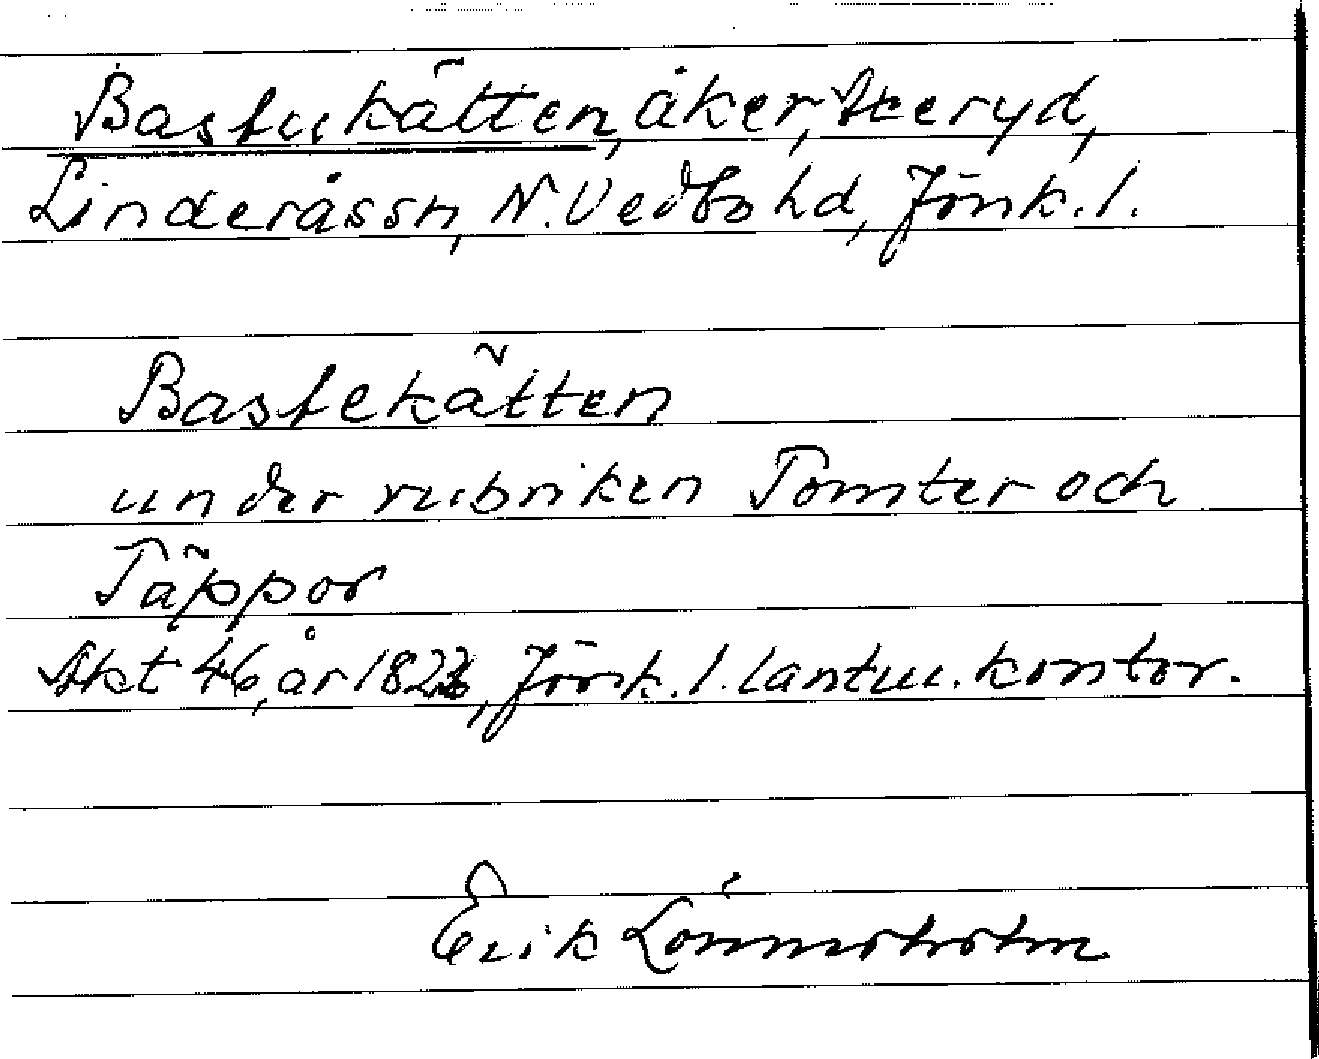 Bastukätten, åker, Steeryd,
Linderåssn, N. Vedbo hd, Jönk. l.
Bastekätten
under rubriken Tomter och
Täppor
Akt 46, år 1822, Jönk. l. lantm. kontor.
Erik Lönnerholm